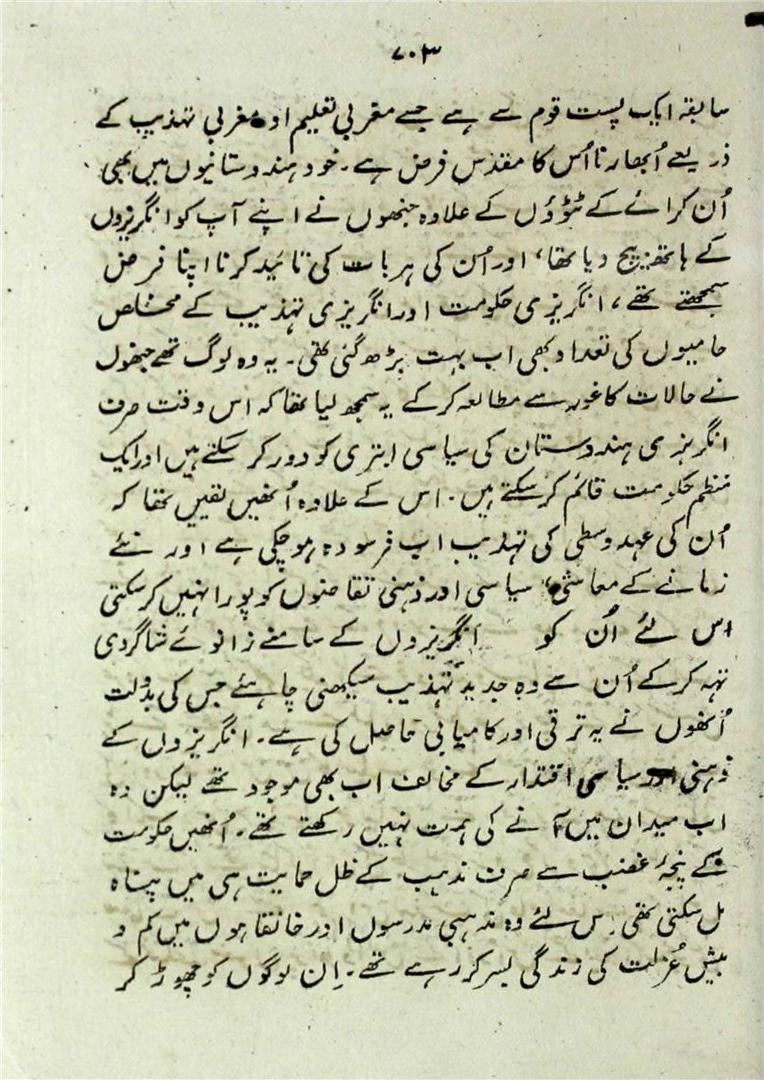 ۷۰۳
سابقہ ایک پست قوم سے ہے جسے مغربی تعلیم اور مغربی تہذیب کے
ذریعے اُبھارنا اُس کا مقدس فرض ہے۔ خود ہندوستانیوں میں بھی
اُن کرائے کے ٹٹوؤں کے علاوہ جنھوں نے اپنے آپ کو انگریزوں
کے ہاتھ بیچ دیا تھا، اور اُن کی ہر بات کی تائید کرنا اپنا فرض
سمجھتے تھے، انگریزی حکومت اور انگریزی تہذیب کے مخلص
حامیوں کی تعداد بھی اب بہت بڑھ گئی تھی۔ یہ وہ لوگ تھے جنھوں
نے حالات کا غور سے مطالعہ کرکے یہ سمجھ لیا تھا کہ اس وقت صرف
انگریز ہی ہندوستان کی سیاسی ابتری کو دور کر سکتے ہیں اور ایک
منظم حکومت قائم کر سکتے ہیں۔ اس کے علاوہ اُنھیں یقین تھا کہ
اُن کی عہد وسطی کی تہذیب اب فرسودہ ہو چکی ہے اور نئے
زمانے کے معاشی، سیاسی اور ذہنی تقاضوں کو پورا نہیں کر سکتی
اس لئے اُن کو انگریزوں کے سامنے زانوئے شاگردی
تہہ کرکے اُن سے وہ جدید تہذیب سیکھنی چاہئے جس کی بدولت
اُنھوں نے یہ ترقی اور کامیابی حاصل کی ہے۔ انگریزوں کے
ذہنی اور سیاسی اقتدار کے مخالف اب بھی موجود تھے لیکن وہ
اب میدان میں آنے کی ہمت نہیں رکھتے تھے۔ اُنھیں حکومت
کے پنجۂ غضب سے صرف مذہب کے ظل حمایت ہی میں پناہ
مل سکتی تھی اس لئے وہ مذہبی مدرسوں اور خانقاہوں میں کم و
بیش عُزلت کی زندگی بسر کر رہے تھے۔ اِن لوگوں کو چھوڑ کر